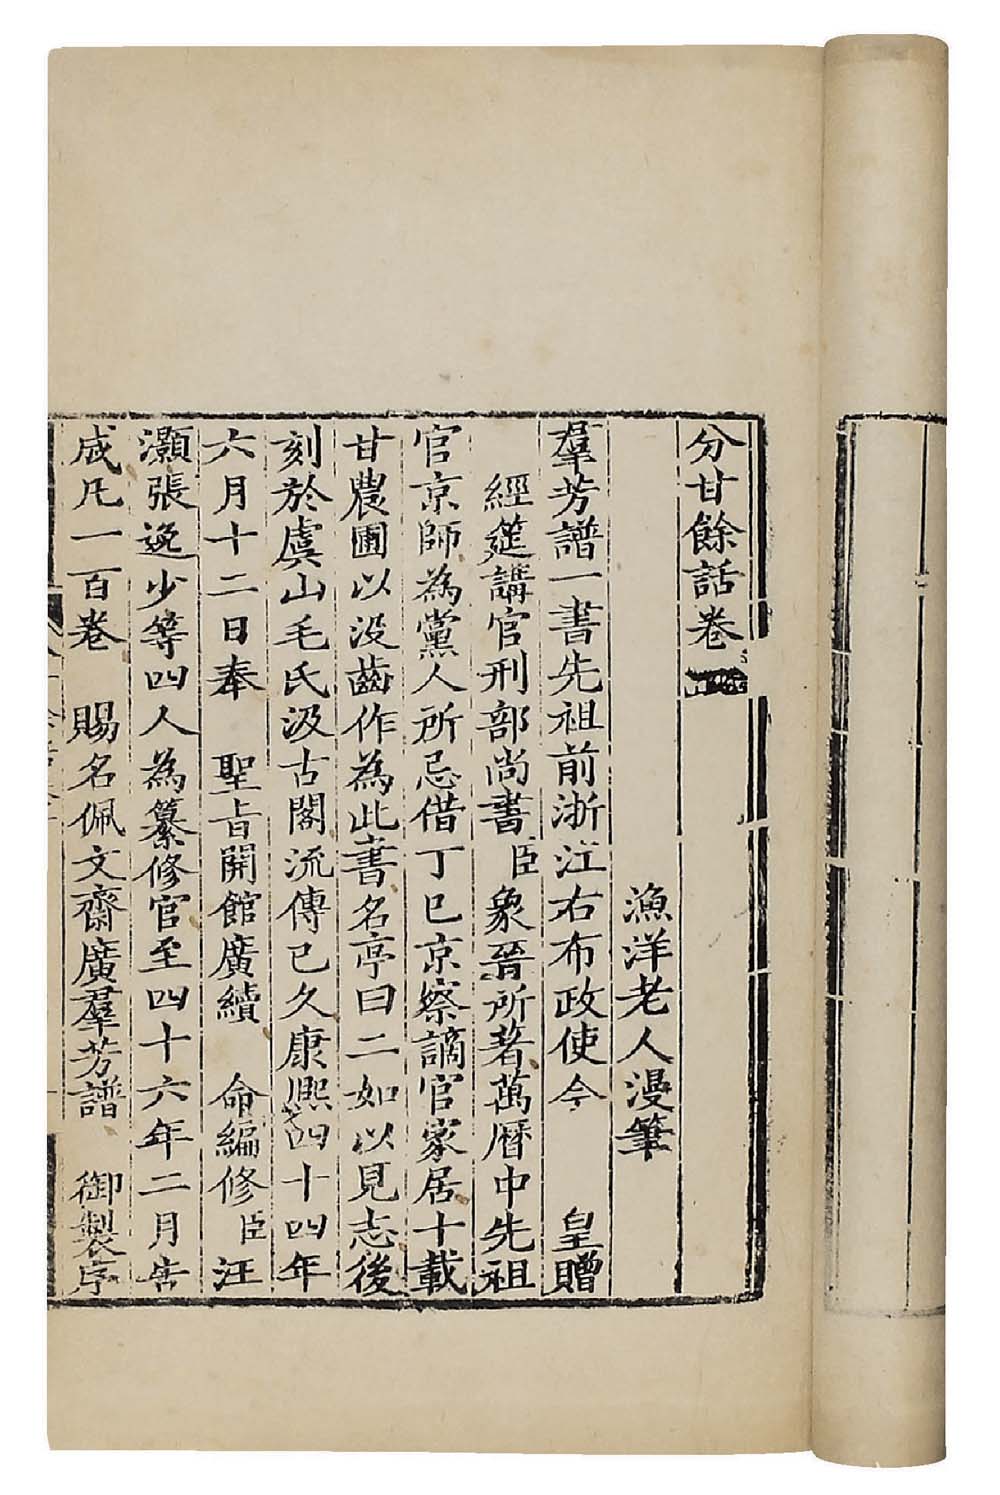 分甘餘話卷
漁洋老人漫筆
羣芳譜一書先祖前浙江右布政使今 皇贈
經筵講官刑部尚書臣象晉所著萬曆中先祖
官京師為黨人所忌借丁巳京察謫官家居十載
甘農圃以没齒作為此書名亭曰二如以見志後
刻於虞山毛氏汲古閣流傳已久康熙四十四年
六月十二日奉 聖旨開館廣續 命編修臣汪
灝張逸少等四人為纂修官至四十六年二月告
成凡一百卷 賜名佩文齋廣羣芳譜 御製序